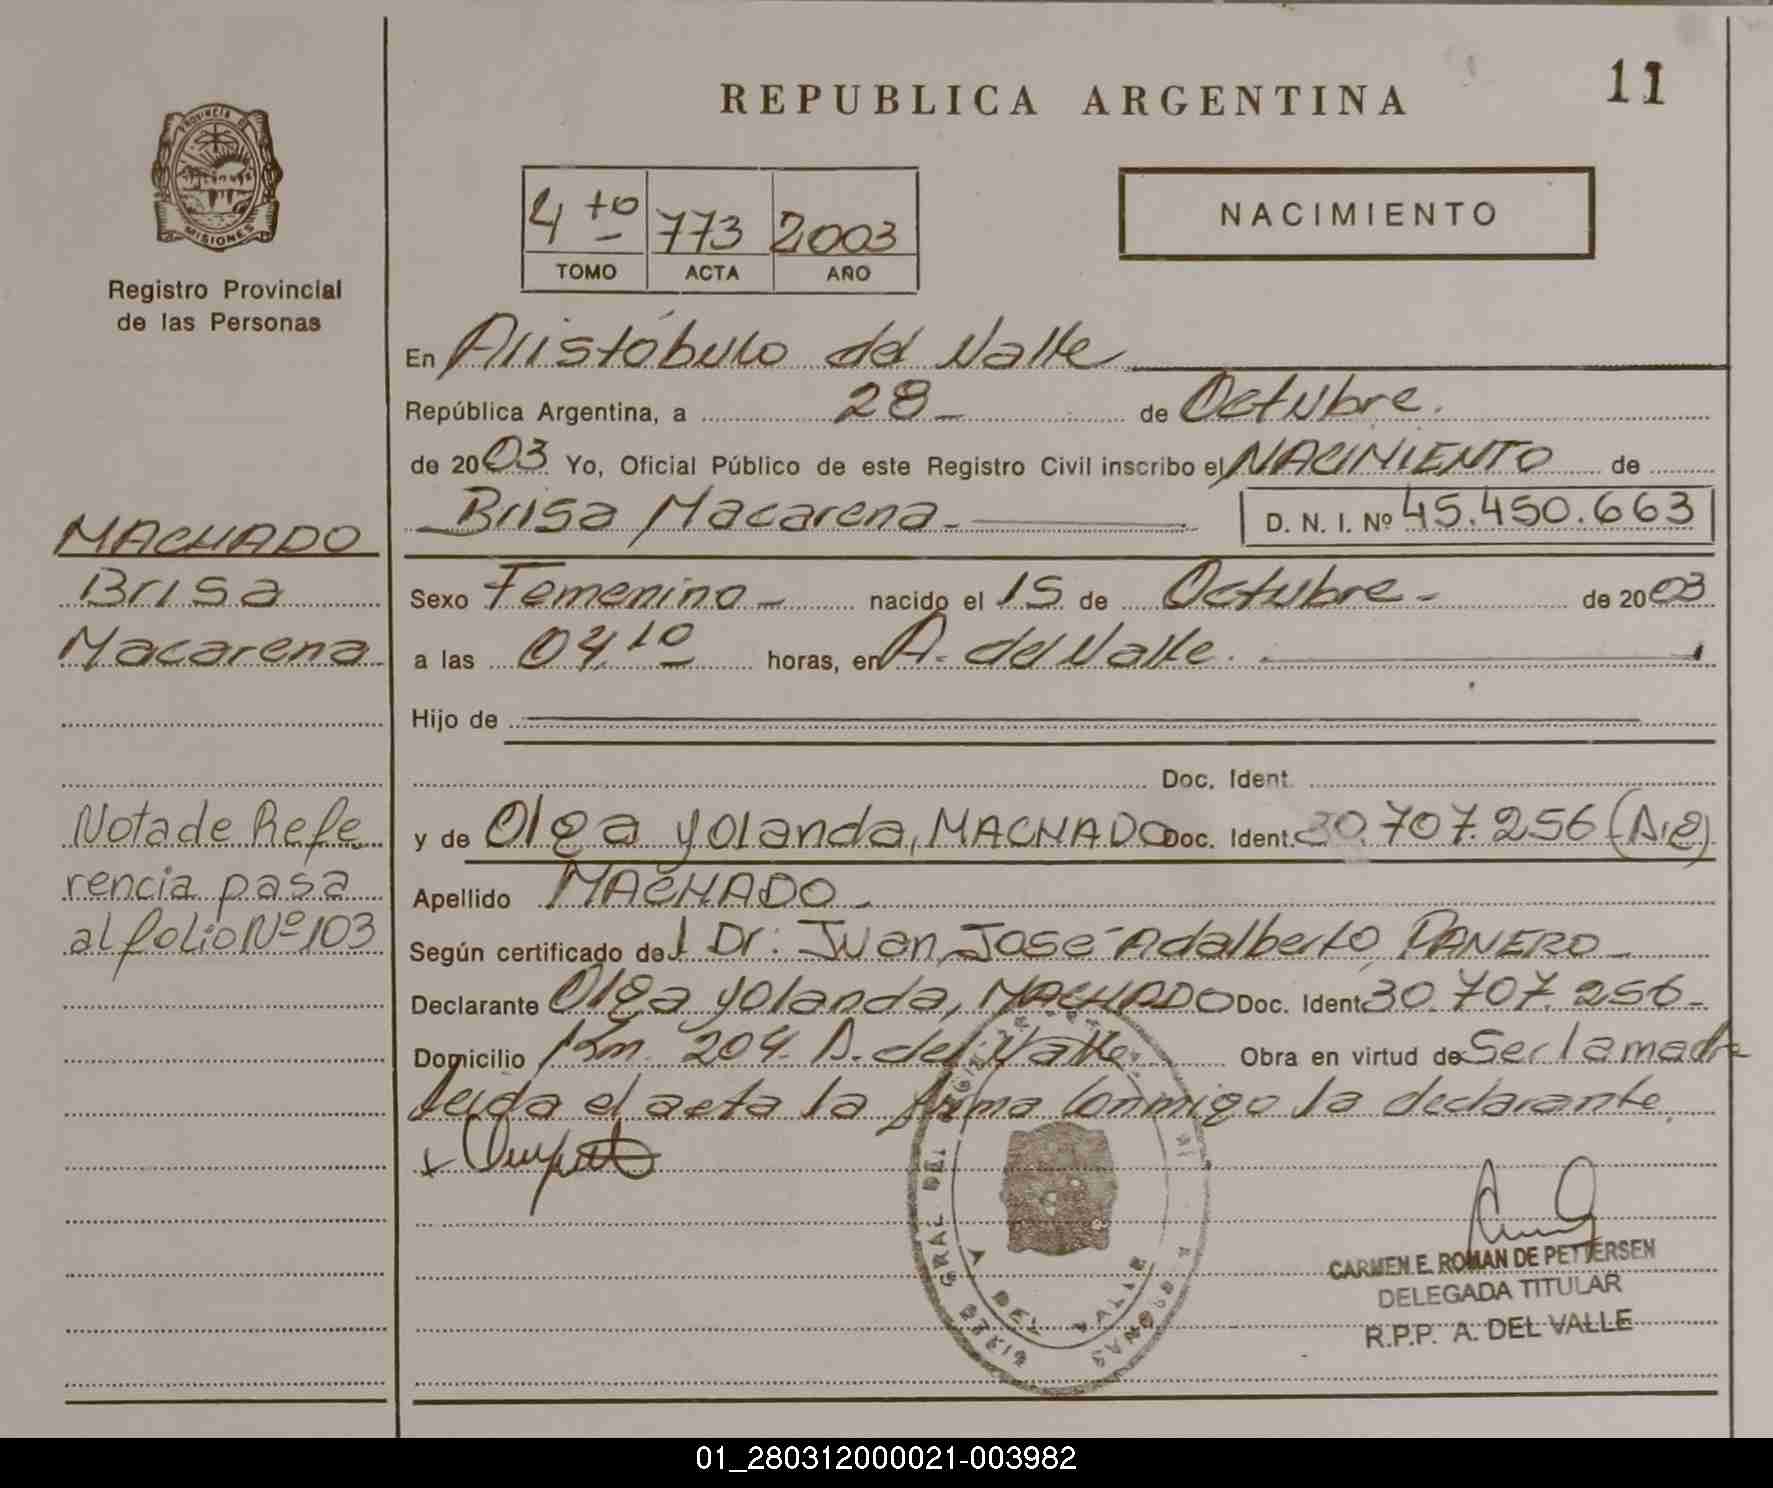 11
REPUBLICA ARGENTINA
PROVINCIA DE
MISIONES
Registro Provincial
de las Personas
4to 773 2003
TOMO ACTA AÑO
NACIMIENTO
En Aristóbulo del Valle
República Argentina, a 28 de Octubre.
de 2003 Yo, Oficial Público de este Registro Civil inscribo el NACIMIENTO de
Brisa Macarena D. N. I. Nº 45.450.663
MACHADO
Brisa
Macarena
Sexo Femenino nacido el 15 de Octubre de 2003
a las 04,10 horas, en A. del Valle.
Hijo de
Doc. Ident.
y de Olga Yolanda, MACHADO Doc. Ident. 30.707.256
Nota de Refe
rencia pasa
al folio Nº 103
Apellido MACHADO
Según certificado del Dr: Juan José Adalberto PANERO
Declarante Olga Yolanda, MACHADO Doc. Ident 30.707.256-
Domicilio Km. 204. A. del Valle Obra en virtud de Ser la madre
leida el acta la firma conmigo la declarante.
GRAL DEL
A DEL VALLE
CARMEN E. ROMAN DE PETTERSEN
DELEGADA TITULAR
R.P.P. A. DEL VALLE
01_280312000021-003982